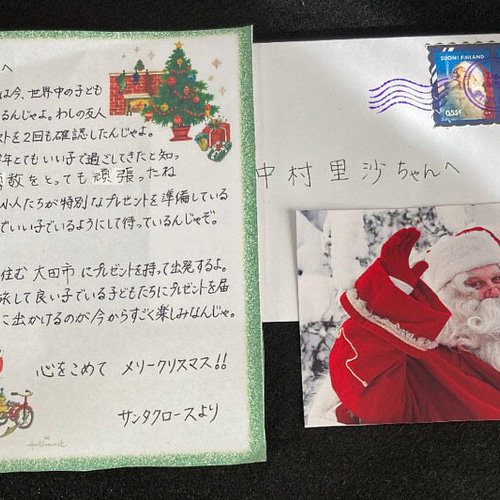 へ
は今、世界中の子ども
るんじゃよ。わしの友人
ストを2回も確認したんじゃよ。
年とてもいい子で過ごしてきたと知っ
数をとっても頑張ったね
小人たちが特別なプレゼントを準備している
でいい子でいるようにして待っているんじゃぞ。
住む 大田市 にプレゼントを持って出発するよ。
旅して良い子でいる子どもたちにプレゼントを届
に出かけるのが今からすごく楽しみなんじゃ。
心をこめて メリークリスマス!!
サンタクロースより
Hallmark
SUOMI FINLAND
0,55€
中村里沙ちゃんへ